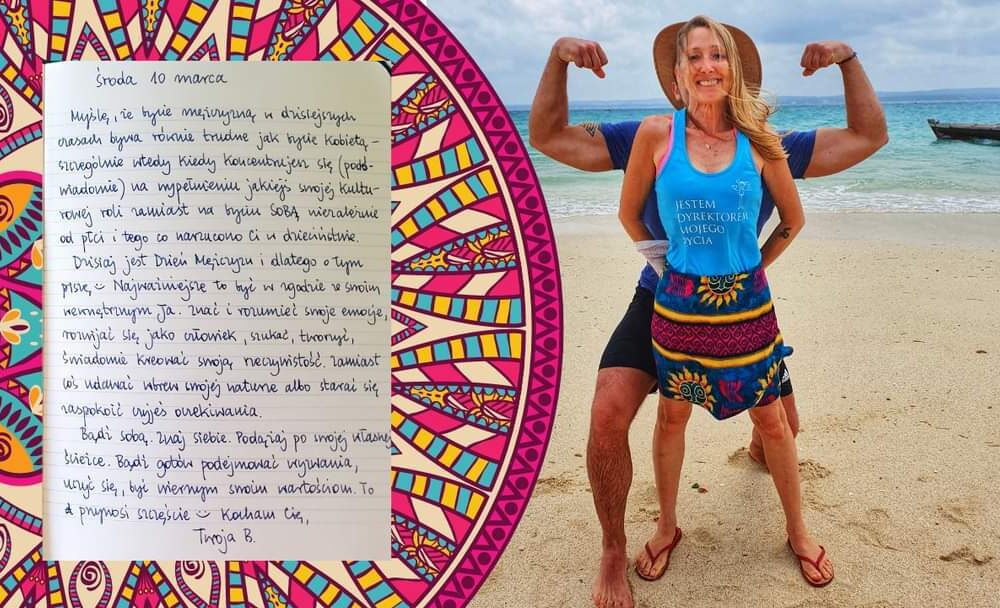 środa 10 marca
Myślę, że bycie mężczyzną w dzisiejszych
czasach bywa równie trudne jak bycie kobietą –
szczególnie wtedy kiedy koncentrujesz się (podś-
wiadomie) na wypełnieniu jakiejś swojej kultu-
rowej roli zamiast na byciu SOBĄ niezależnie
od płci i tego co narzucono Ci w dzieciństwie.
Dzisiaj jest Dzień Mężczyzn i dlatego o tym
piszę Najważniejsze to być w zgodzie ze swoim
wewnętrznym Ja. Znać i rozumieć swoje emocje,
rozwijać się jako człowiek, szukać, tworzyć,
świadomie kreować swoją rzeczywistość zamiast
coś udawać wbrew swojej naturze albo starać się
zaspokoić czyjeś oczekiwania.
Bądź sobą. Znaj siebie. Podążaj po swojej własnej
ścieżce. Bądź gotów podejmować wyzwania,
uczyć się, być wiernym swoim wartościom. To
przynosi szczęście Kocham Cię,
Twoja B.
JESTEM
DYREKTOREM
MOJEGO
ŻYCIA